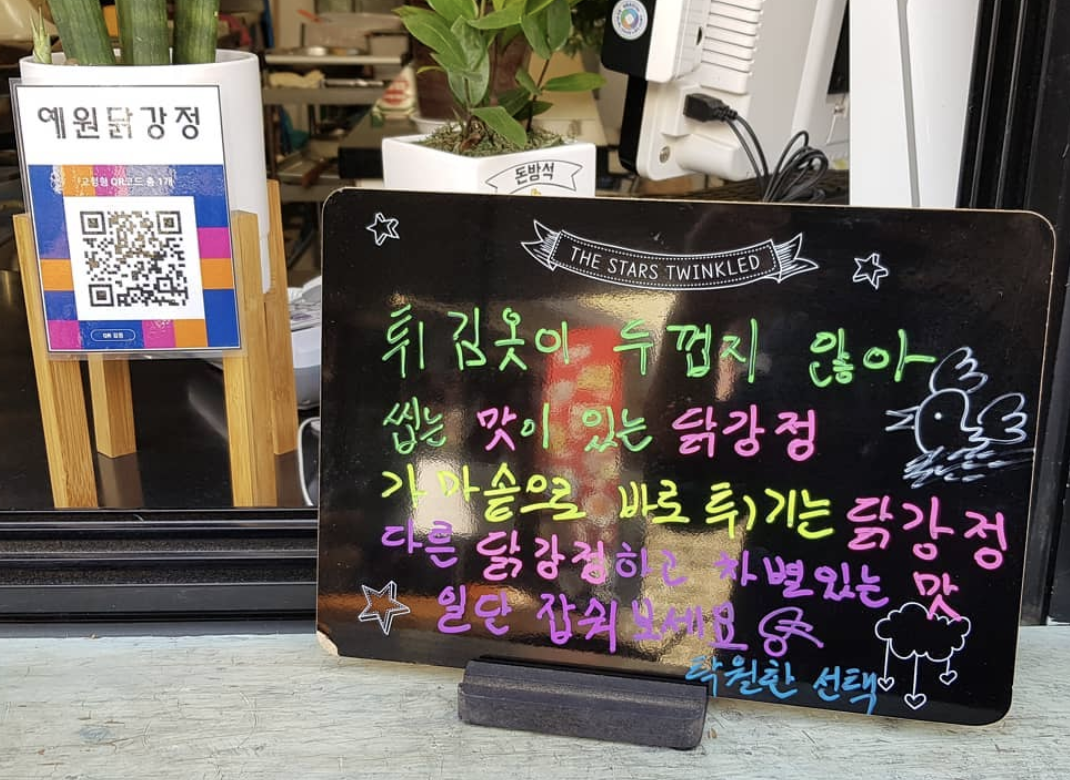 예원닭강정
고정형 QR코드 총 1개
돈방석
THE STARS TWINKLED
튀김옷이 두껍지 않아
씹는 맛이 있는 닭강정
가마솥으로 바로 튀기는 닭강정
다른 닭강정하고 차별있는 맛
일단 잡숴보세요
탁월한 선택